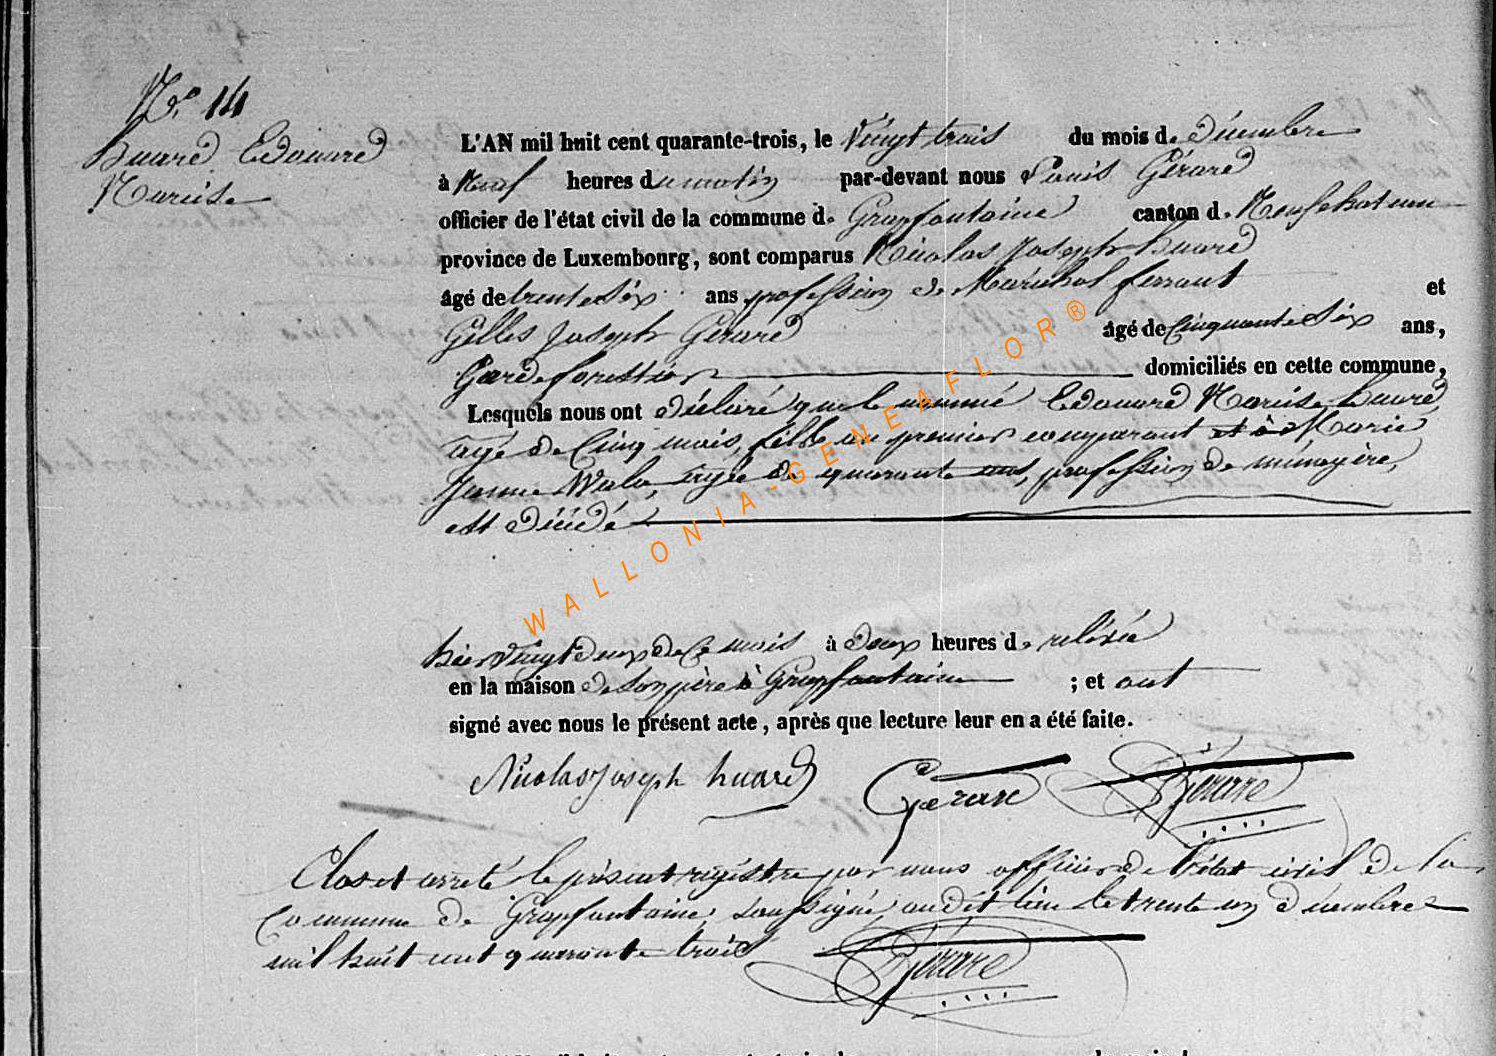 N.° 14
huard Edouard
Narcisse
L'AN mil huit cent quarante-trois, le Vingt trois du mois de décembre
à Neuf heures du matin par-devant nous Louis Gérard
officier de l'état civil de la commune de Grapfontaine canton de Neufchateau
province de Luxembourg, sont comparus Nicolas Joseph huard
âgé de trente Six ans profession de Maréchal ferrant et
Gilles Joseph Gérard âgé de Cinquante Six ans,
Garde forestier domiciliés en cette commune,
Lesquels nous ont déclaré que le nommé Edouard Narcisse huard,
agé de Cinq mois, fils du premier comparant et à Marie
Jeanne Wala, agée de quarante ans, profession de ménagère,
est décédé
hier Vingt deux de Ce mois à deux heures de relevée
en la maison de Son père à Grapfontaine ; et ont
signé avec nous le présent acte, après que lecture leur en a été faite.
Nicolas Joseph huard Gérard Gérard
Clos et arreté le présent régistre par nous officier de l'état civil de la
Commune de Grapfontaine, Soussigné, audit lieu le trente un décembre
mil huit cent quarante trois
Gérard
WALLONIA-GENEAFLOR®